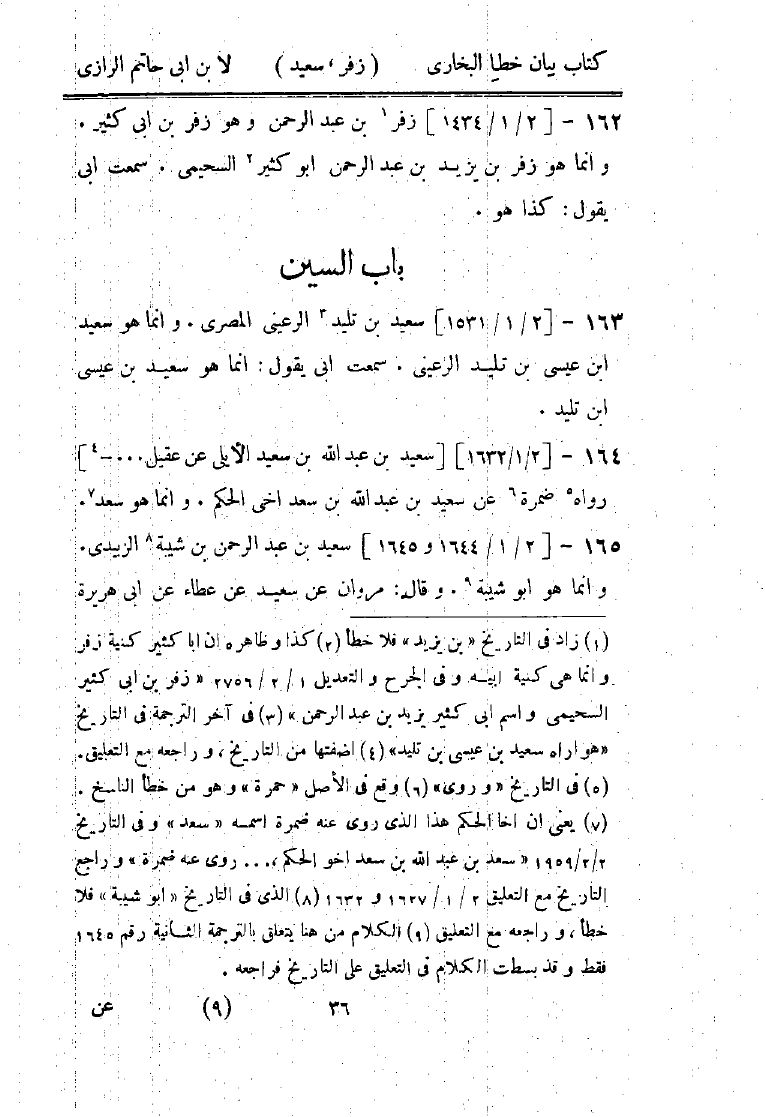 كتاب بيان خطأ البخارى ( زفر، سعيد ) لا بن ابى حاتم الرازى
١٦٢ - [ ٢ / ١ / ١٤٣٤ ] زفر١ بن عبد الرحمن و هو زفر بن ابى كثير .
و انما هو زفر بن يزيد بن عبد الرحمن ابو كثير٢ السحيمى . سمعت ابى
يقول: كذا هو .
باب السين
١٦٣ - [٢ / ١ / ١٥٣١] سعيد بن تليد٣ الرعينى المصرى . و انما هو سعيد
ابن عيسى بن تليد الرعينى . سمعت ابى يقول: انما هو سعيد بن عيسى
ابن تليد .
١٦٤ - [٢/١/١٦٣٢] [سعيد بن عبد الله بن سعيد الأيلى عن عقيل...-٤]
رواه٥ ضمرة٦ عن سعيد بن عبد الله بن سعد اخى الحكم . و انما هو سعد٧.
١٦٥ - [ ٢ / ١ / ١٦٤٤ و ١٦٤٥ ] سعيد بن عبد الرحمن بن شيبة٨ الزبيدى.
و انما هو ابو شيبة٩ . و قال: مروان عن سعيد عن عطاء عن ابى هريرة
(١) زاد فى التاريخ «بن يزيد» فلا خطأ (٢) كذا و ظاهره ان ابا كثير كنية زفر
و انما هى كنية ابيه و فى الجرح و التعديل ١ / ٢ / ٢٧٥٦ « زفر بن ابى كثير
السحيمى و اسم ابى كثير يزيد بن عبد الرحمن » (٣) فى آخر الترجمة فى التاريخ
«هو اراه سعيد بن عيسى بن تليد» (٤) اضفتها من التاريخ ، و راجعه مع التعليق.
(٥) فى التاريخ « و روى» (٦) وقع فى الأصل « حمرة » و هو من خطأ الناسخ .
(٧) يعنى ان اخا الحكم هذا الذى روى عنه ضمرة اسمه « سعد » و فى التاريخ
٢/٢/ ١٩٥٩ « سعد بن عبد الله بن سعد اخو الحكم،... روى عنه ضمرة » و راجع
التاريخ مع التعليق ٢ / ١ / ١٦٢٧ و ١٦٣٢ (٨) الذى فى التاريخ « ابو شيبة » فلا
خطأ ، و راجعه مع التعليق (٩) الكلام من هنا يتعلق بالترجمة الثانية رقم ١٦٤٥
فقط و قد بسطت الكلام فى التعليق على التاريخ فراجعه .
٣٦ (٩) عن